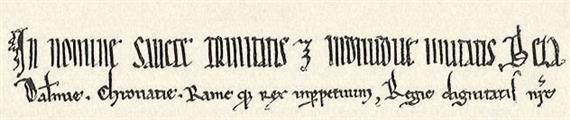 In nomine sancte trinitatis ⁊ individue unitatis. Bela
Dalmie. Chroatie. Rame qꝫ rex inperpetuum, Regie dignitatis nre